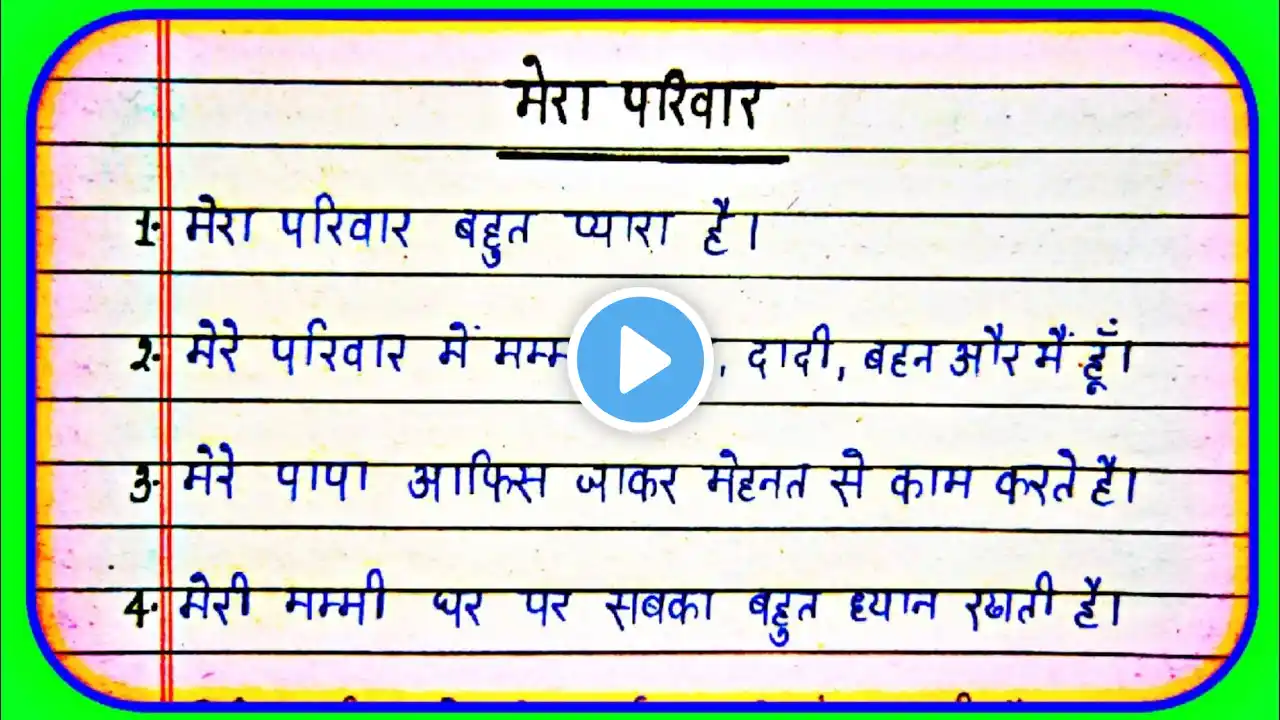 मेरा परिवार
1. मेरा परिवार बहुत प्यारा है।
2. मेरे परिवार में मम्म , दादी, बहन और मैं हूँ।
3. मेरे पापा आफिस जाकर मेहनत से काम करते है।
4. मेरी मम्मी घर पर सबका बहुत ध्यान रखती है।